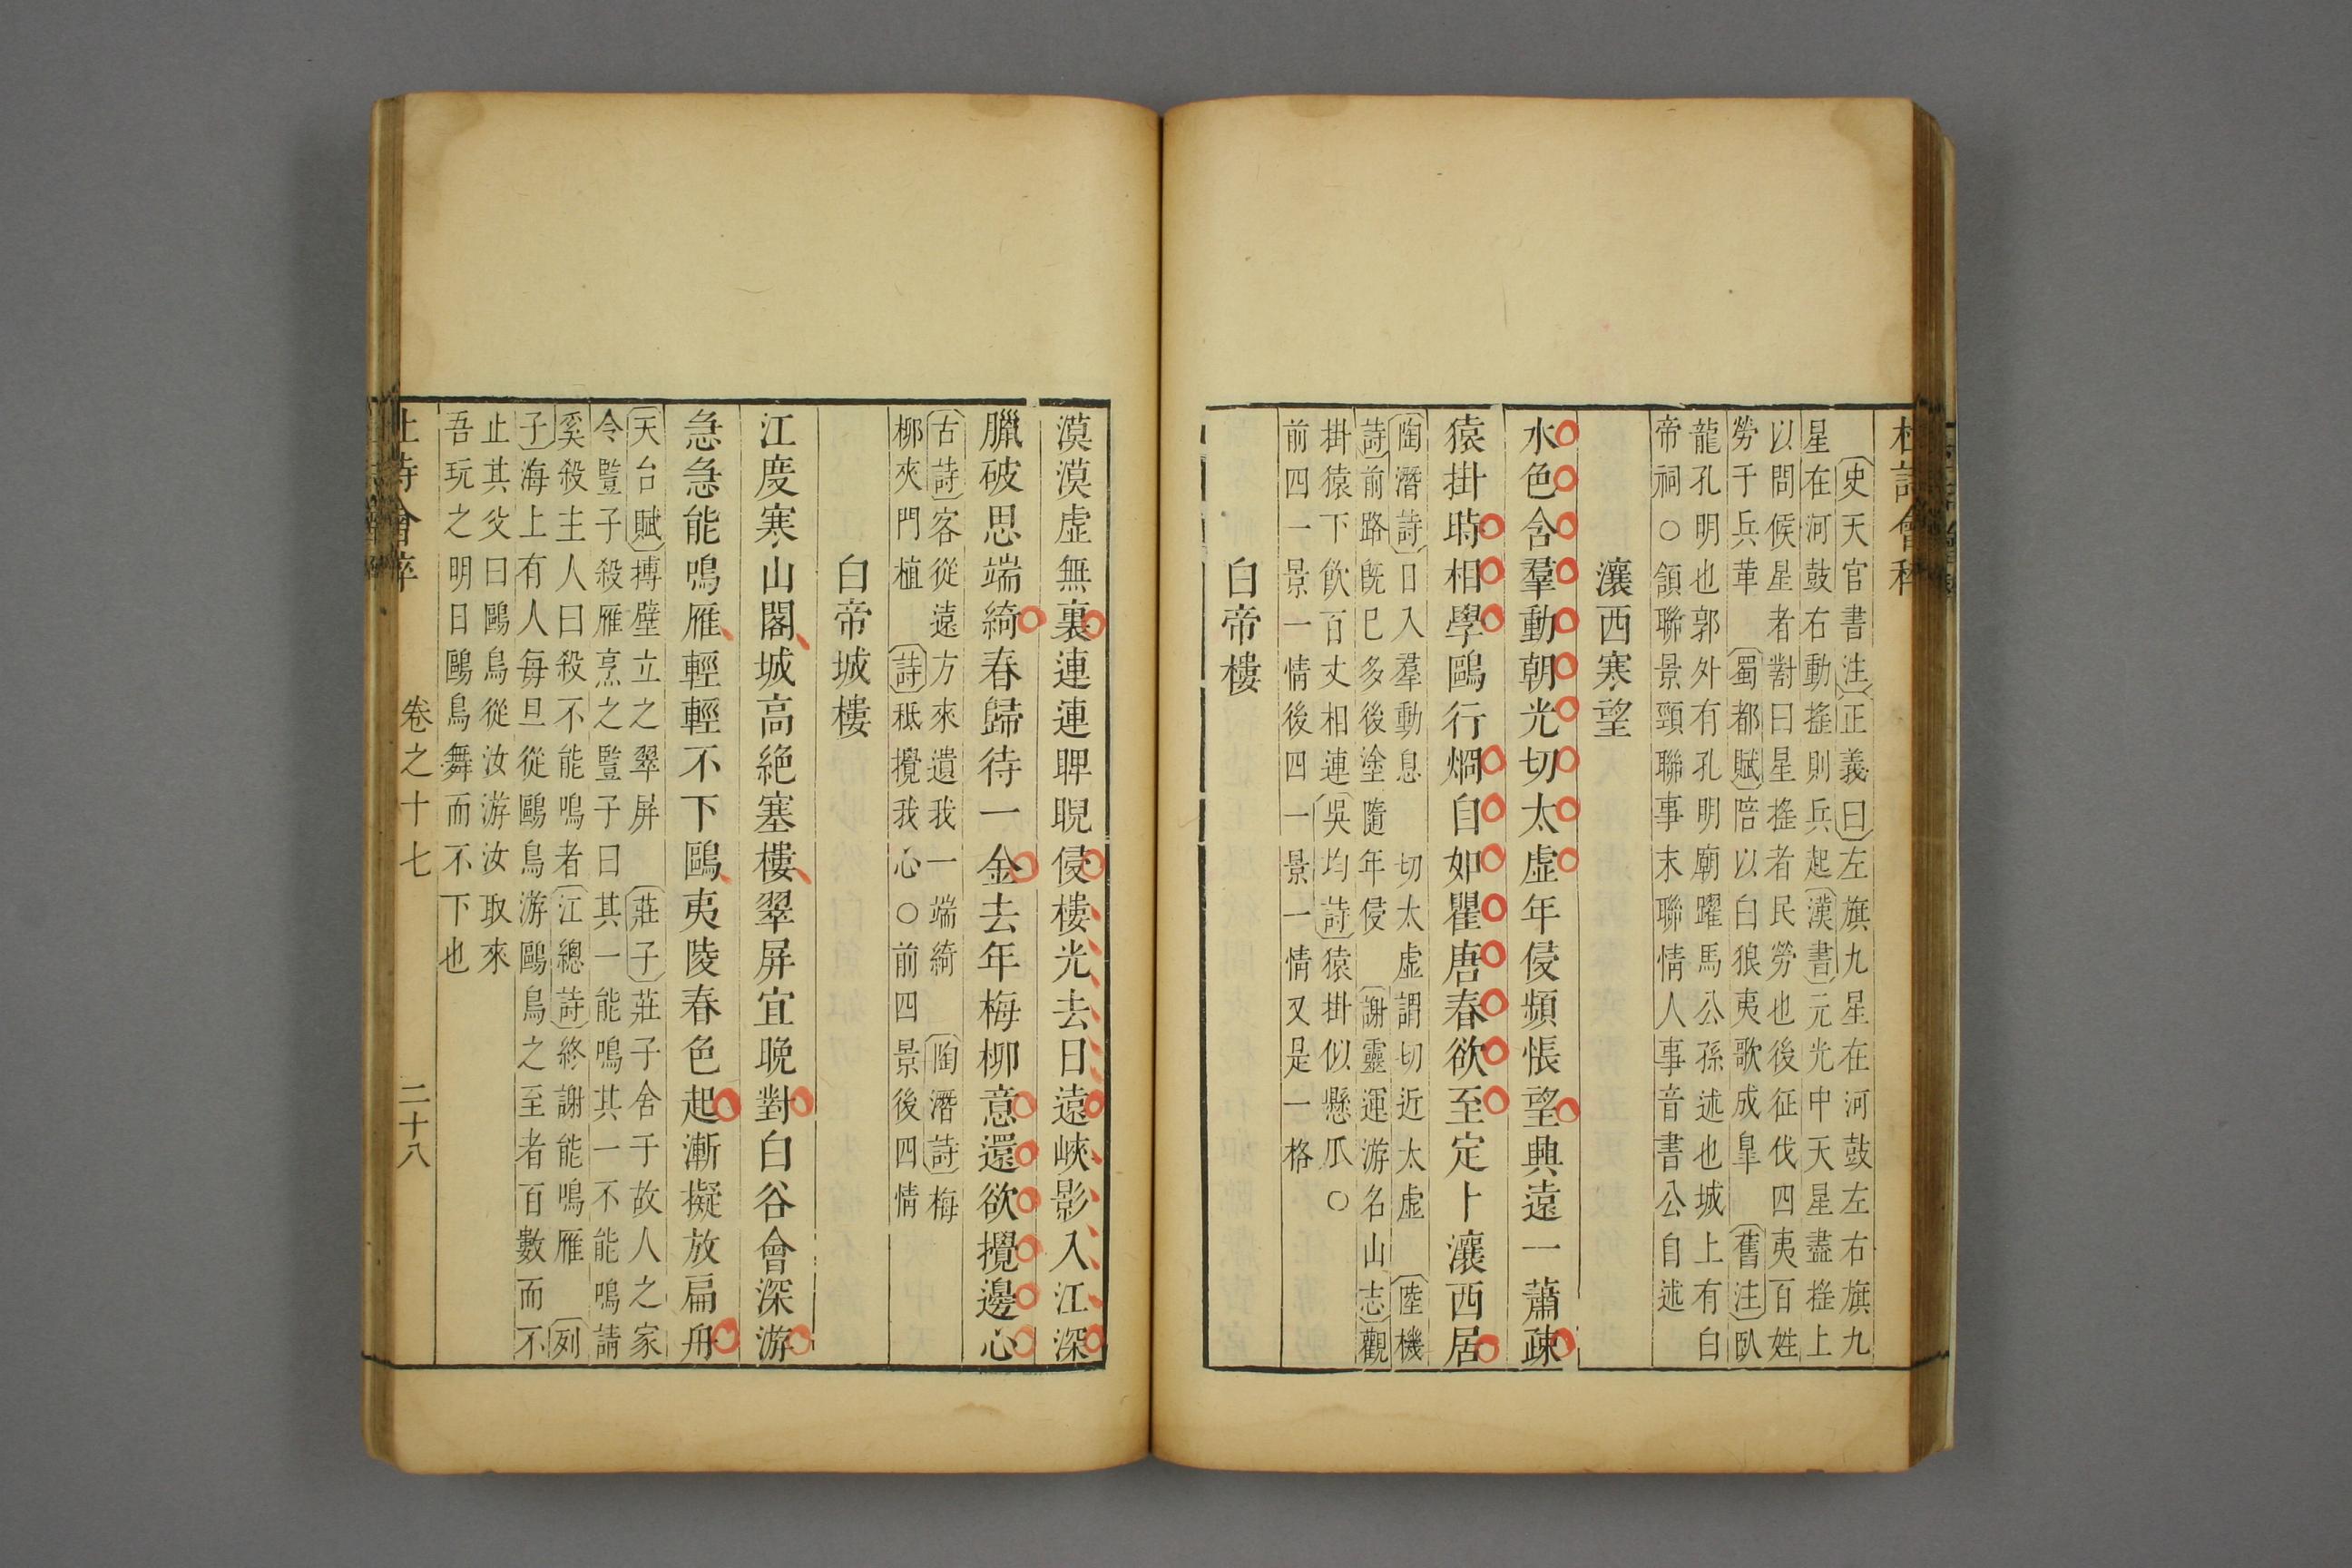 杜詩會稡
史天官書注正義曰左旗九星在河鼓左右旗九
星在河鼓右動搖則兵起漢書元光中天星盡搖上
以問候星者對曰星搖者民勞也後征伐四夷百姓
勞于兵革 蜀都賦陪以白狼夷歌成章 舊注臥
龍孔明也郭外有孔明廟躍馬公孫述也城上有白
帝祠○頷聯景頸聯事末聯情人事音書公自述
瀼西寒望
水色含羣動朝光切太虛年侵頻悵望興遠一蕭疎
猿掛時相學鷗行烱自如瞿唐春欲至定卜瀼西居
陶潛詩日入羣動息 切太虛謂切近太虛 陸機
詩前路旣已多後塗隨年侵 謝靈運游名山志觀
掛猿下飲百丈相連吳均詩猿掛似懸瓜○
前四一景一情後四一景一情又是一格
白帝樓
漠漠虛無裏連連睥睨侵樓光去日遠峽影入江深
臘破思端綺春歸待一金去年梅柳意還欲攪邊心
古詩客從遠方來遺我一端綺 陶潛詩梅
柳夾門植 詩秪攪我心○前四景後四情
白帝城樓
江度寒山閣城高絕塞樓翠屏宜晚對白谷會深游
急急能鳴雁輕輕不下鷗夷陵春色起漸擬放扁舟
天台賦搏壁立之翠屏 莊子莊子舍于故人之家
令豎子殺雁烹之豎子曰其一能鳴其一不能鳴請
奚殺主人曰殺不能鳴者江總詩終謝能鳴雁 列
子海上有人每旦從鷗鳥游鷗鳥之至者百數而不
止其父曰鷗鳥從汝游汝取來
吾玩之明日鷗鳥舞而不下也
杜詩會稡 卷之十七 二十八